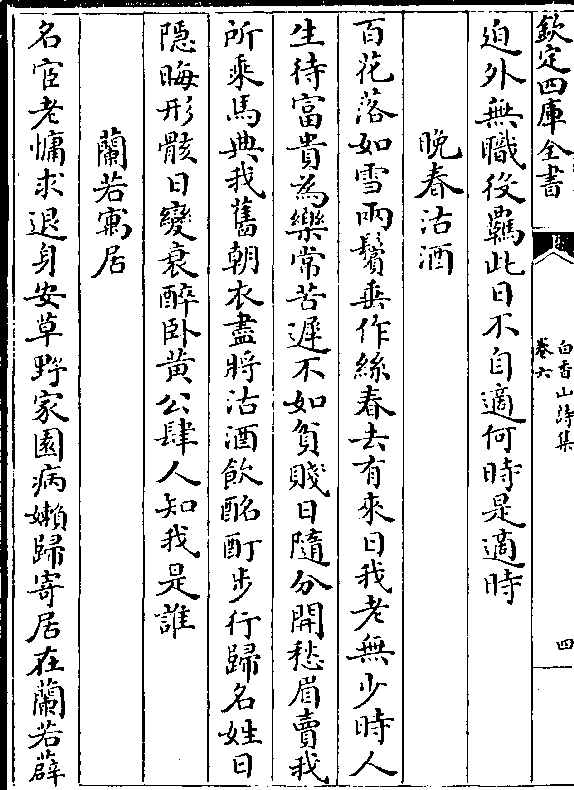 欽定四庫全書
白香山詩集
卷六
四
迫外無職役羈此日不自適何時是適時
晚春沽酒
百花落如雪兩鬢垂作絲春去有來日我老無少時人
生待富貴為樂常苦遲不如貧賤日隨分開愁眉賣我
所乘馬典我舊朝衣盡將沽酒飲酩酊步行歸名姓日
隠晦形骸日變衰醉卧黄公肆人知我是誰
蘭若寓居
名宦老慵求退身安草野家園病嬾歸寄居在蘭若薜